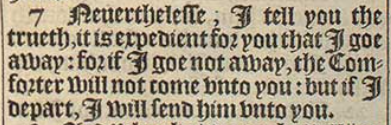 7 Neuerthelesse, I tell you the
trueth, it is expedient for you that I goe
away: for if I goe not away, the Com-
forter will not come vnto you: but if I
depart, I will send him vnto you.